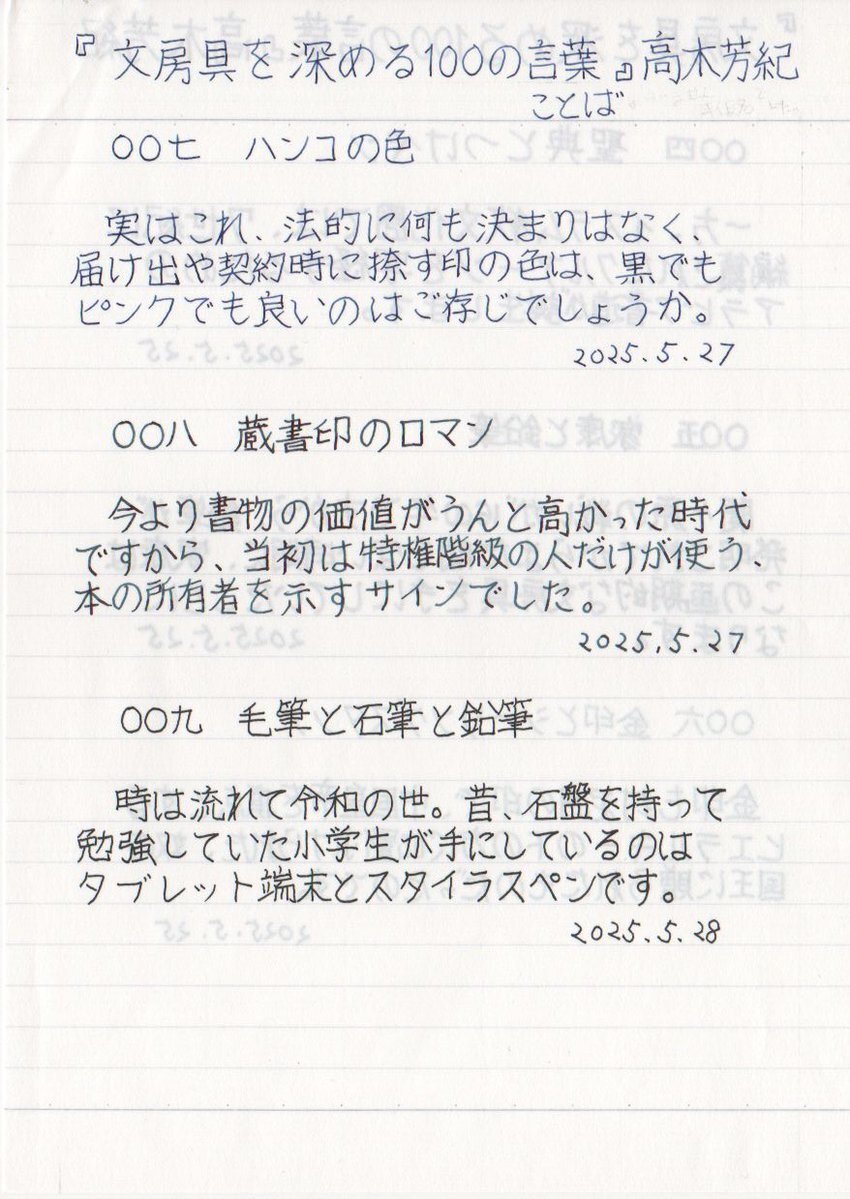 『文房具を深める100の言葉』高木芳紀
ことば
〇〇七 ハンコの色
実はこれ、法的に何も決まりはなく、
届け出や契約時に捺す印の色は、黒でも
ピンクでも良いのはご存じでしょうか。
2025.5.27
〇〇八 蔵書印のロマン
今より書物の価値がうんと高かった時代
ですから、当初は特権階級の人だけが使う、
本の所有者を示すサインでした。
2025.5.27
〇〇九 毛筆と石筆と鉛筆
時は流れて令和の世。昔、石盤を持って
勉強していた小学生が手にしているのは
タブレット端末とスタイラスペンです。
2025.5.28